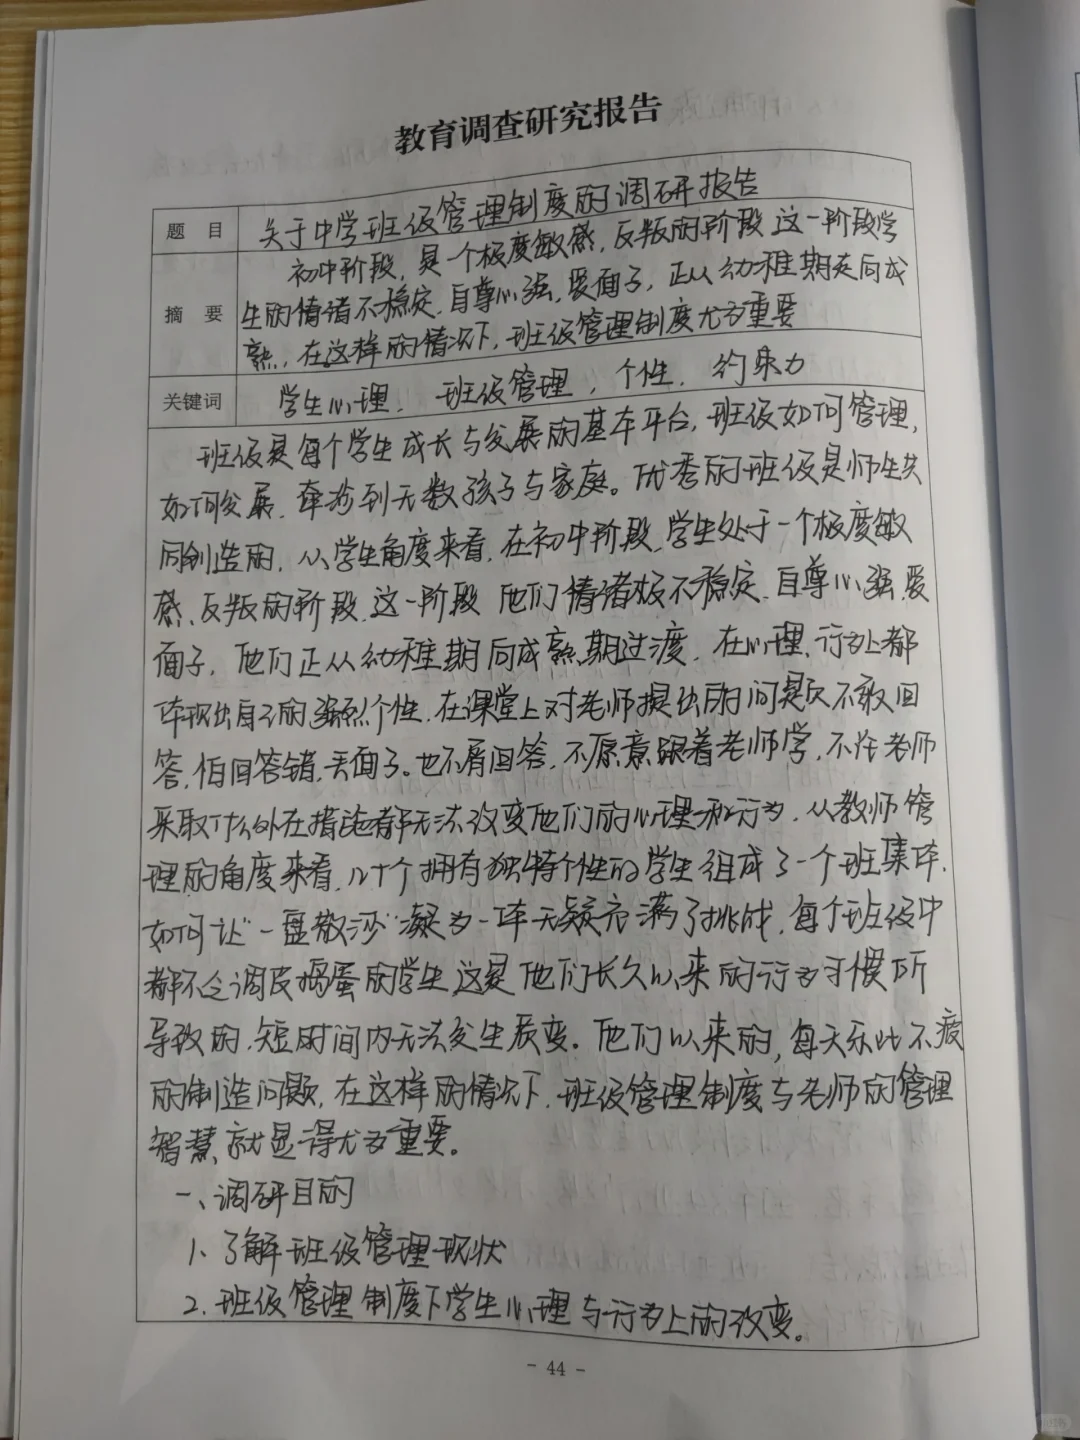 教育调查研究报告
题 目 关于中学班级管理制度的调研报告
初中阶段，是一个极度敏感，反叛的阶段 这一阶段学
摘 要 生的情绪不稳定，自尊心强，爱面子，正从幼稚期走向成
熟，在这样的情况下，班级管理制度尤为重要
关键词 学生心理， 班级管理， 个性， 约束力
班级是每个学生成长与发展的基本平台，班级如何管理，
如何发展，牵涉到无数孩子与家庭。优秀的班级是师生共
同创造的，从学生角度来看，在初中阶段，学生处于一个极度敏
感、反叛的阶段，这一阶段 他们情绪极不稳定，自尊心强，爱
面子，他们正从幼稚期向成熟期过渡，在心理、行为上都
体现出自己的强烈个性，在课堂上对老师提出的问题不敢回
答，怕回答错，丢面子。也不屑回答，不愿意跟着老师学，不论老师
采取什么外在措施都无法改变他们的心理和行为，从教师管
理的角度来看，几十个拥有独特个性的学生组成了一个班集体，
如何让“一盘散沙”凝为一体无疑充满了挑战，每个班级中
都不乏调皮捣蛋的学生，这是他们长久以来的行为习惯所
导致的，短时间内无法发生质变。他们以来的，每天乐此不疲
的制造问题，在这样的情况下，班级管理制度与老师的管理
智慧，就显得尤为重要。
一、调研目的
1、了解班级管理现状
2、班级管理制度下学生心理与行为上的改变。
- 44 -